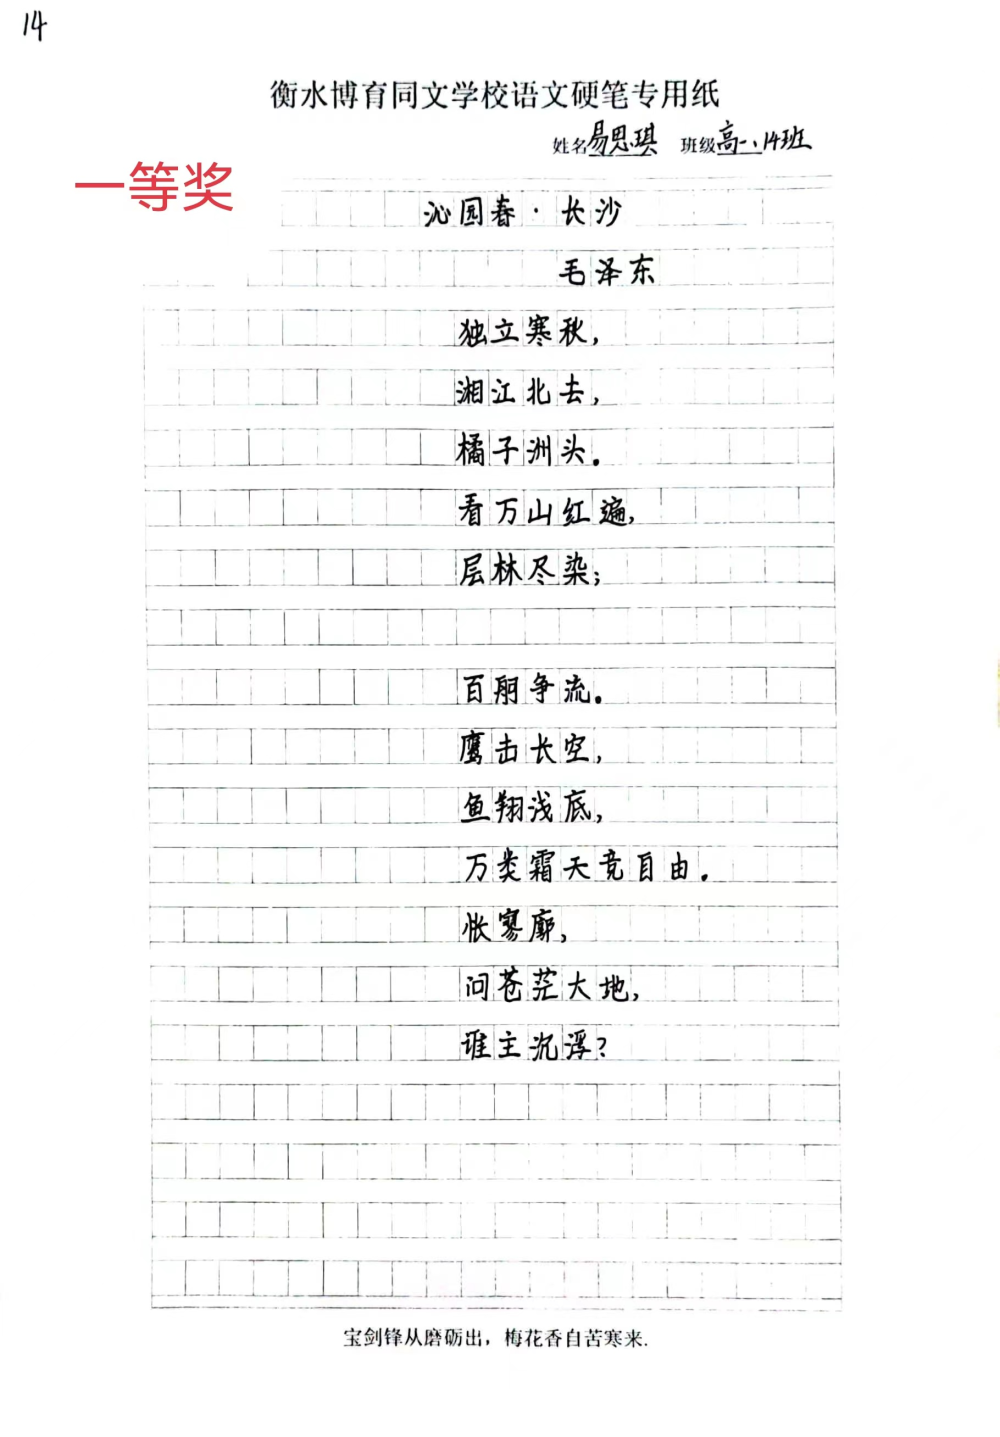 14
衡水博育同文学校语文硬笔专用纸
姓名易思琪 班级高一、14班
一等奖
沁园春·长沙
毛泽东
独立寒秋，
湘江北去，
橘子洲头。
看万山红遍，
层林尽染；
百舸争流。
鹰击长空，
鱼翔浅底，
万类霜天竞自由。
怅寥廓，
问苍茫大地，
谁主沉浮？
宝剑锋从磨砺出，梅花香自苦寒来.